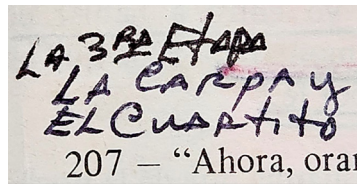 LA 3RA EtAPA
LA CARPA y
EL CUARtito
207 – “Ahora, orar